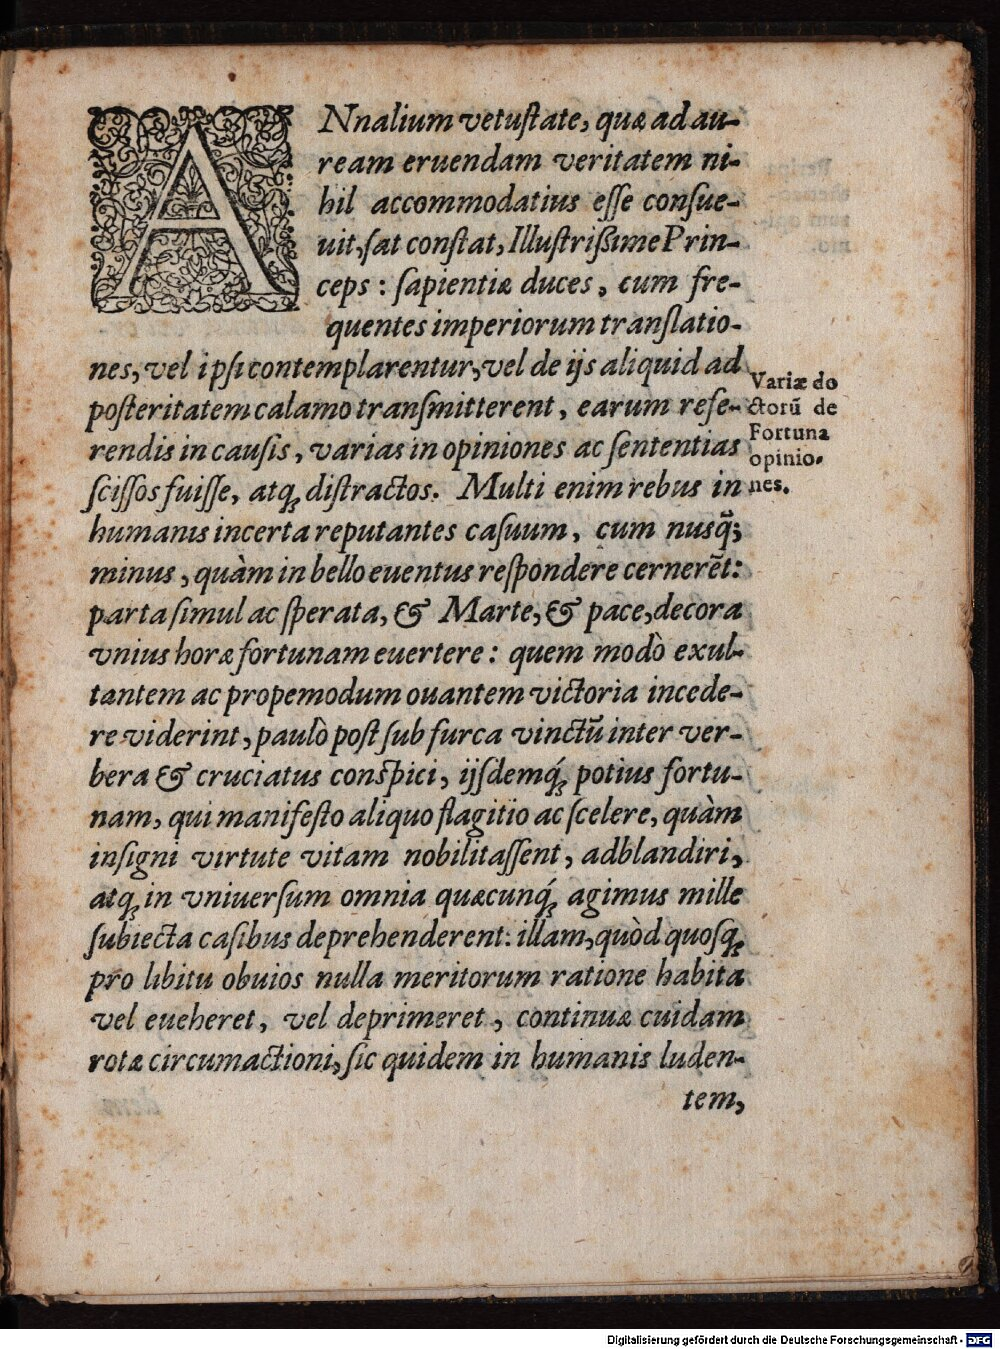 ANnalium vetuſtate, quæ ad au-
ream eruendam veritatem ni-
hil accommodatius eſſe conſue-
uit, ſat conſtat, Illuſtriſsime Prin-
ceps : ſapientiæ duces, cum fre-
quentes imperiorum tranſlatio-
nes, vel ipſi contemplarentur, vel de ijs aliquid ad
poſteritatem calamo tranſmitterent, earum refe-
rendis in cauſis, varias in opiniones ac ſententias
ſciſſos fuiſſe, atq; diſtractos. Multi enim rebus in
humanis incerta reputantes caſuum, cum nusq̃;
minus, quàm in bello euentus reſpondere cernerẽt:
parta ſimul ac ſperata, & Marte, & pace, decora
vnius horæ fortunam euertere: quem modò exul-
tantem ac propemodum ouantem victoria incede-
re viderint, paulò poſt ſub furca vinctũ inter ver-
bera & cruciatus conſpici, ijſdemq́; potius fortu-
nam, qui manifeſto aliquo flagitio ac ſcelere, quàm
inſigni virtute vitam nobilitaſſent, adblandiri,
atq; in vniuerſum omnia quæcunq́; agimus mille
ſubiecta caſibus deprehenderent: illam, quòd quoſq;
pro libitu obuios nulla meritorum ratione habita
vel eueheret, vel deprimeret, continuæ cuidam
rotæ circumactioni, ſic quidem in humanis luden-
tem,
Variæ do
ctorũ de
Fortuna
opinio-
nes.
Digitalisierung gefördert durch die Deutsche Forschungsgemeinschaft - DFG